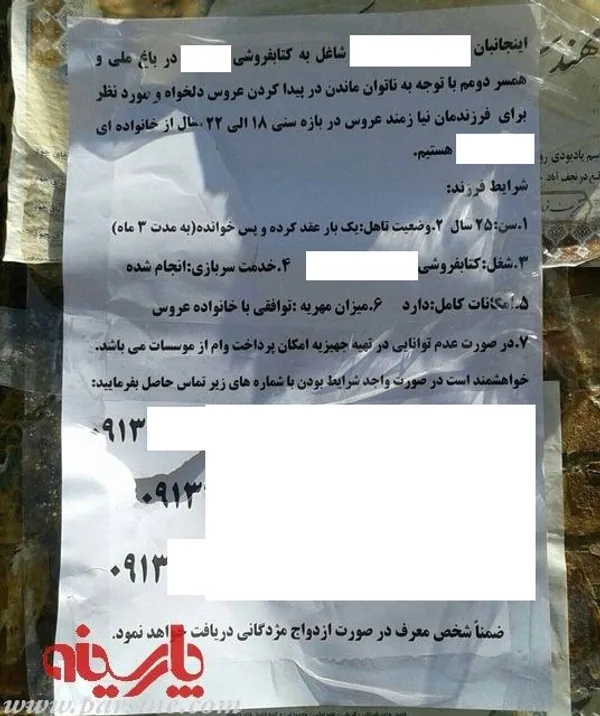 اینجانبان شاغل به کتابفروشی در باغ ملی و
همسر دومم با توجه به ناتوان ماندن در پیدا کردن عروس دلخواه و مورد نظر
برای فرزندمان نیا زمند عروس در بازه سنی ۱۸ الی ۲۲ سال از خانواده ای
هستیم.
شرایط فرزند:
۱.سن:۲۵ سال ۲.وضعیت تاهل:یک بار عقد کرده و پس خوانده(به مدت ۳ ماه)
۳.شغل:کتابفروشی ۴.خدمت سربازی:انجام شده
۵.امکانات کامل:دارد ۶.میزان مهریه :توافقی با خانواده عروس
۷.در صورت عدم توانایی در تهیه جهیزیه امکان پرداخت وام از موسسات می باشد.
خواهشمند است در صورت واجد شرایط بودن با شماره های زیر تماس حاصل بفرمایید:
۰۹۱۳
۰۹۱۳
۰۹۱۳
ضمناً شخص معرف در صورت ازدواج مژدگانی دریافت خواهد نمود.
پارسینه
www.parsine.com